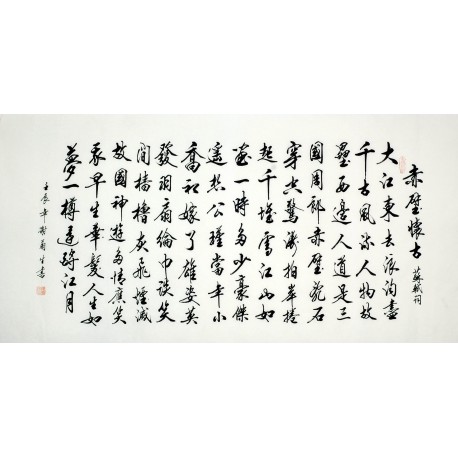 赤壁懷古 蘇軾詞
大江東去浪淘盡
千古風流人物故
壘西邊人道是三
國周郎赤壁亂石
穿空驚濤拍岸捲
起千堆雪江山如
畫一時多少豪傑
遙想公瑾當年小
喬初嫁了雄姿英
發羽扇綸巾談笑
間檣櫓灰飛煙滅
故國神遊多情應笑
我早生華髮人生如
夢一樽還酹江月
壬辰年 生書